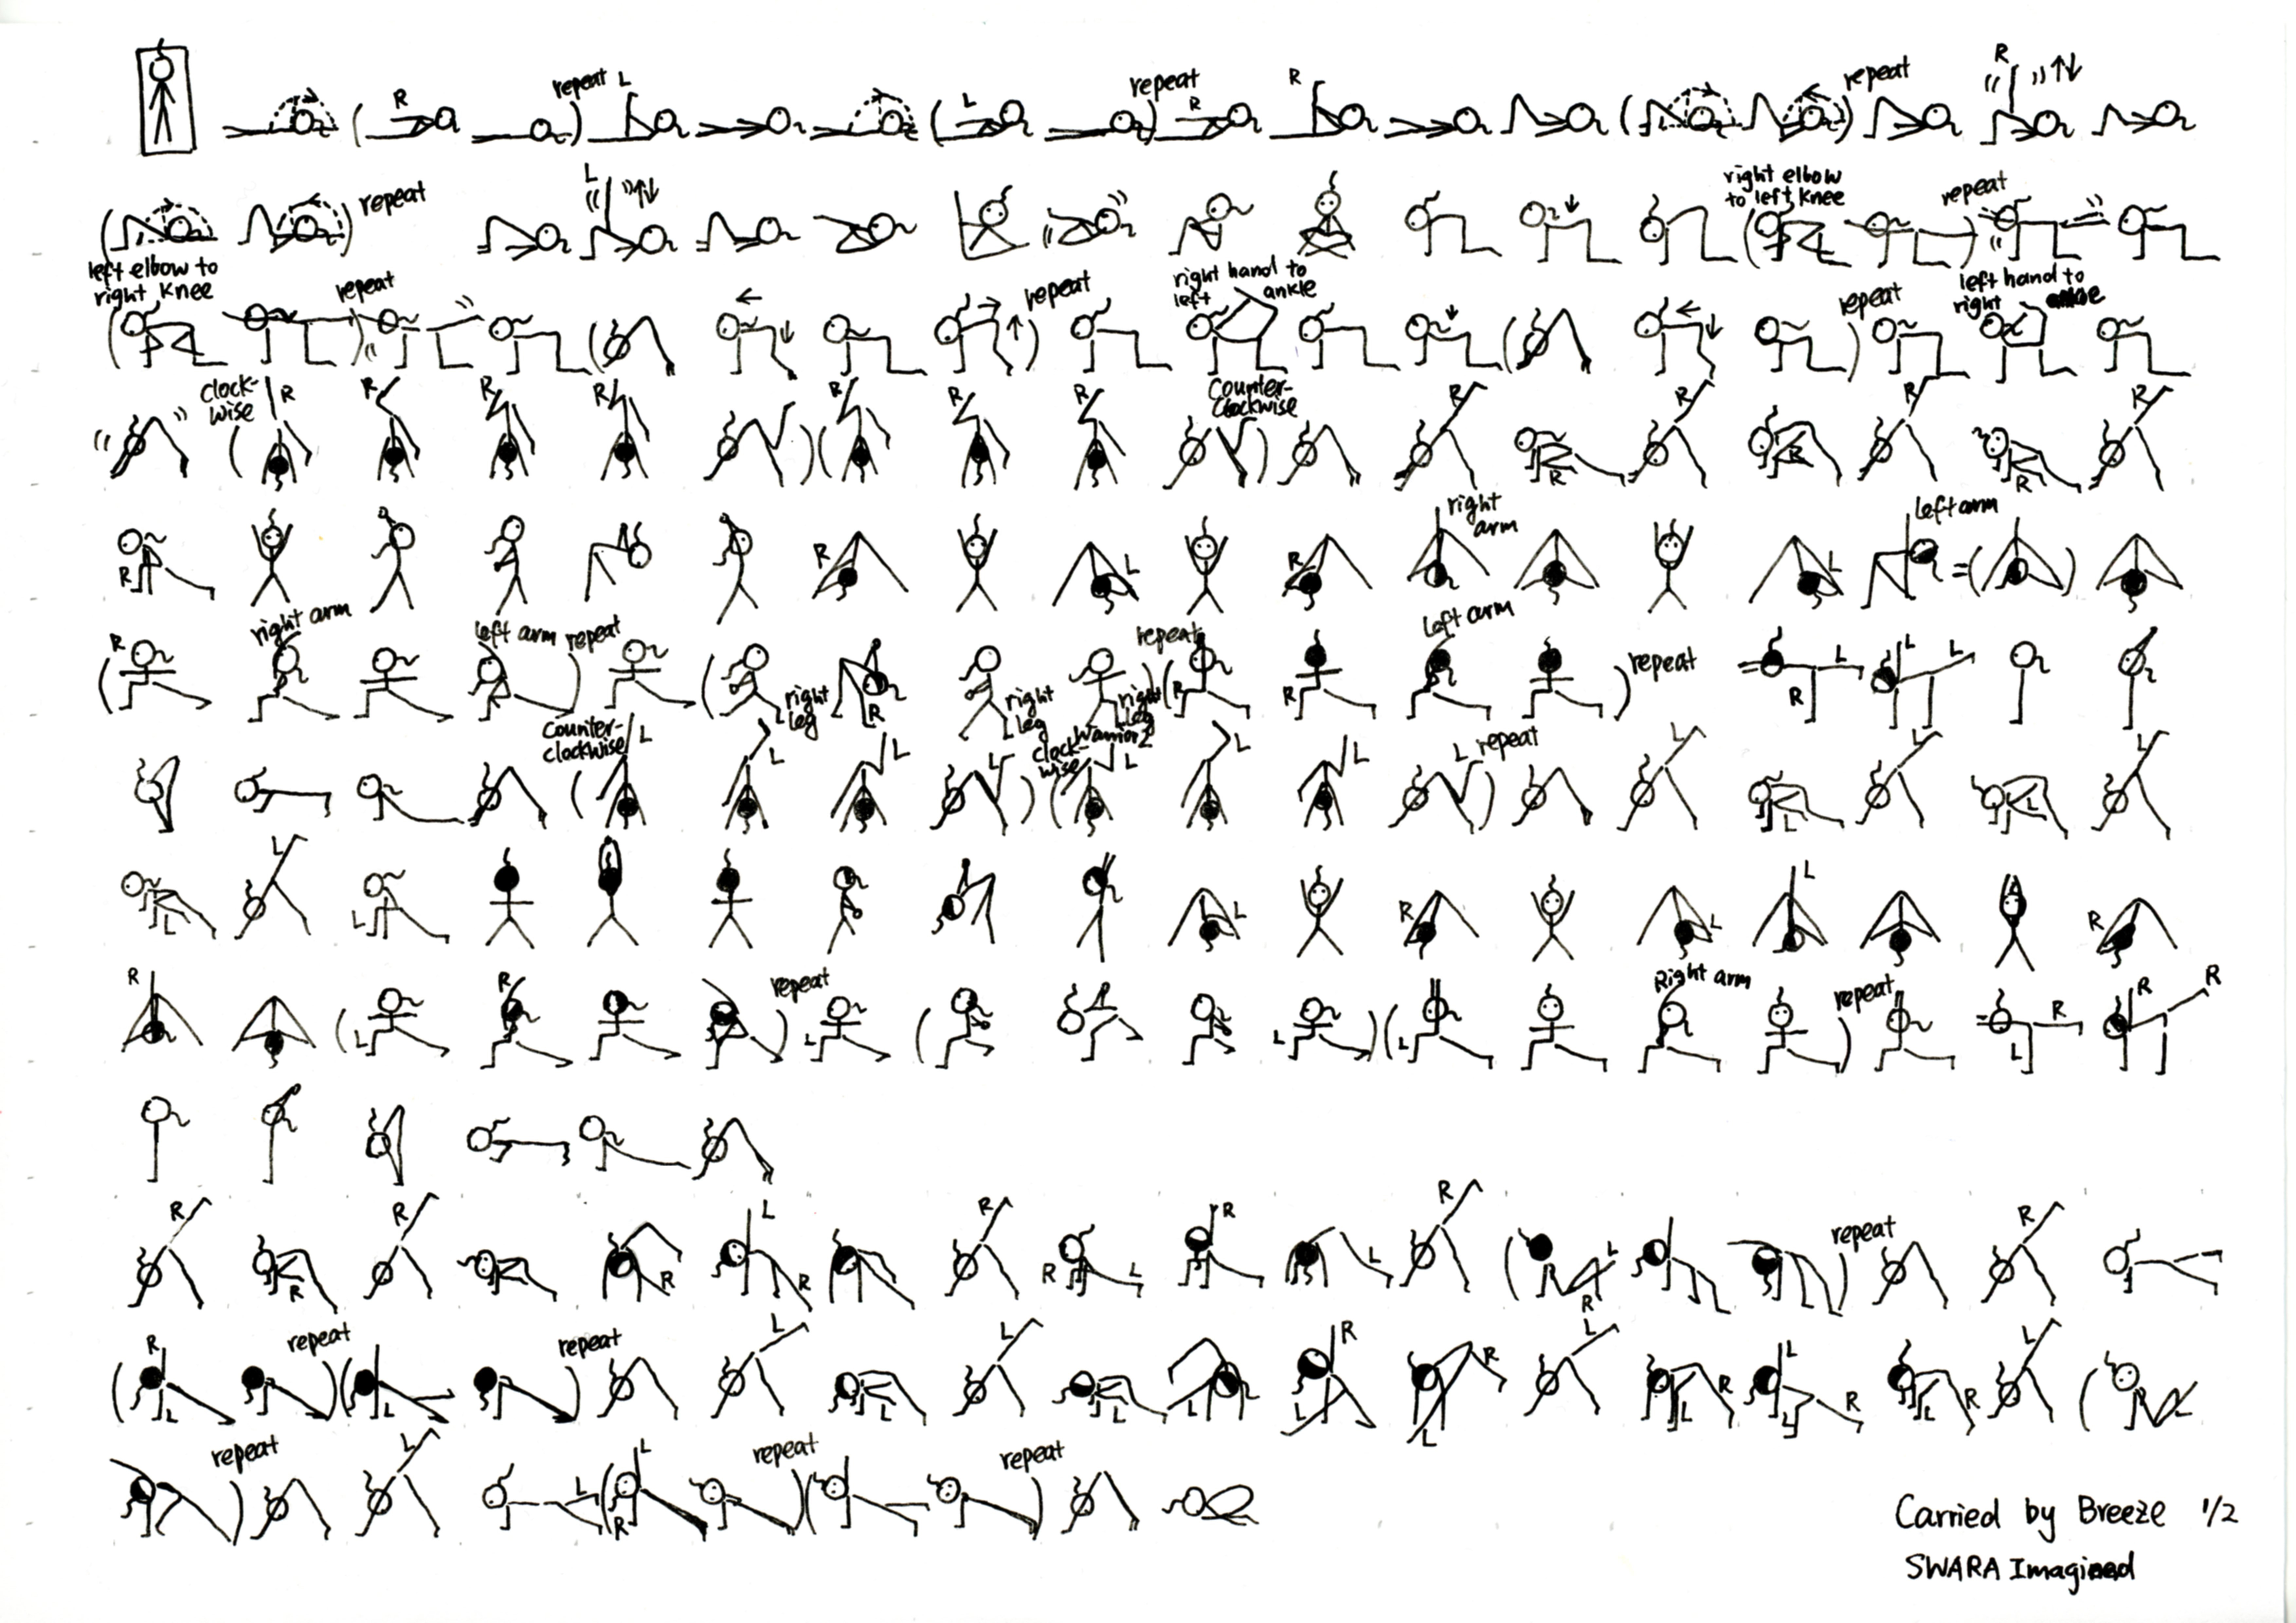 R repeat L L repeat R R repeat R
repeat L right elbow to left knee repeat
left elbow to right knee repeat repeat right hand to left ankle repeat left hand to right
Clock-wise R R R R R R R Counter-Clockwise R R R R R R
R R L R right arm L left arm
R right arm left arm repeat right leg R right leg right leg Warrior 2 repeat R R left arm repeat R L L L
Counter-clockwise L L L L clock-wise L L L L repeat L L L L L
L L L L R L L R
R L R repeat L L Right arm repeat L R R R
R R R R L R R R L R L R L R repeat R
R L repeat L repeat L L L L L R L R L L R L R L R L L
repeat L L R L repeat repeat
Carried by Breeze 1/2
SWARA Imagined